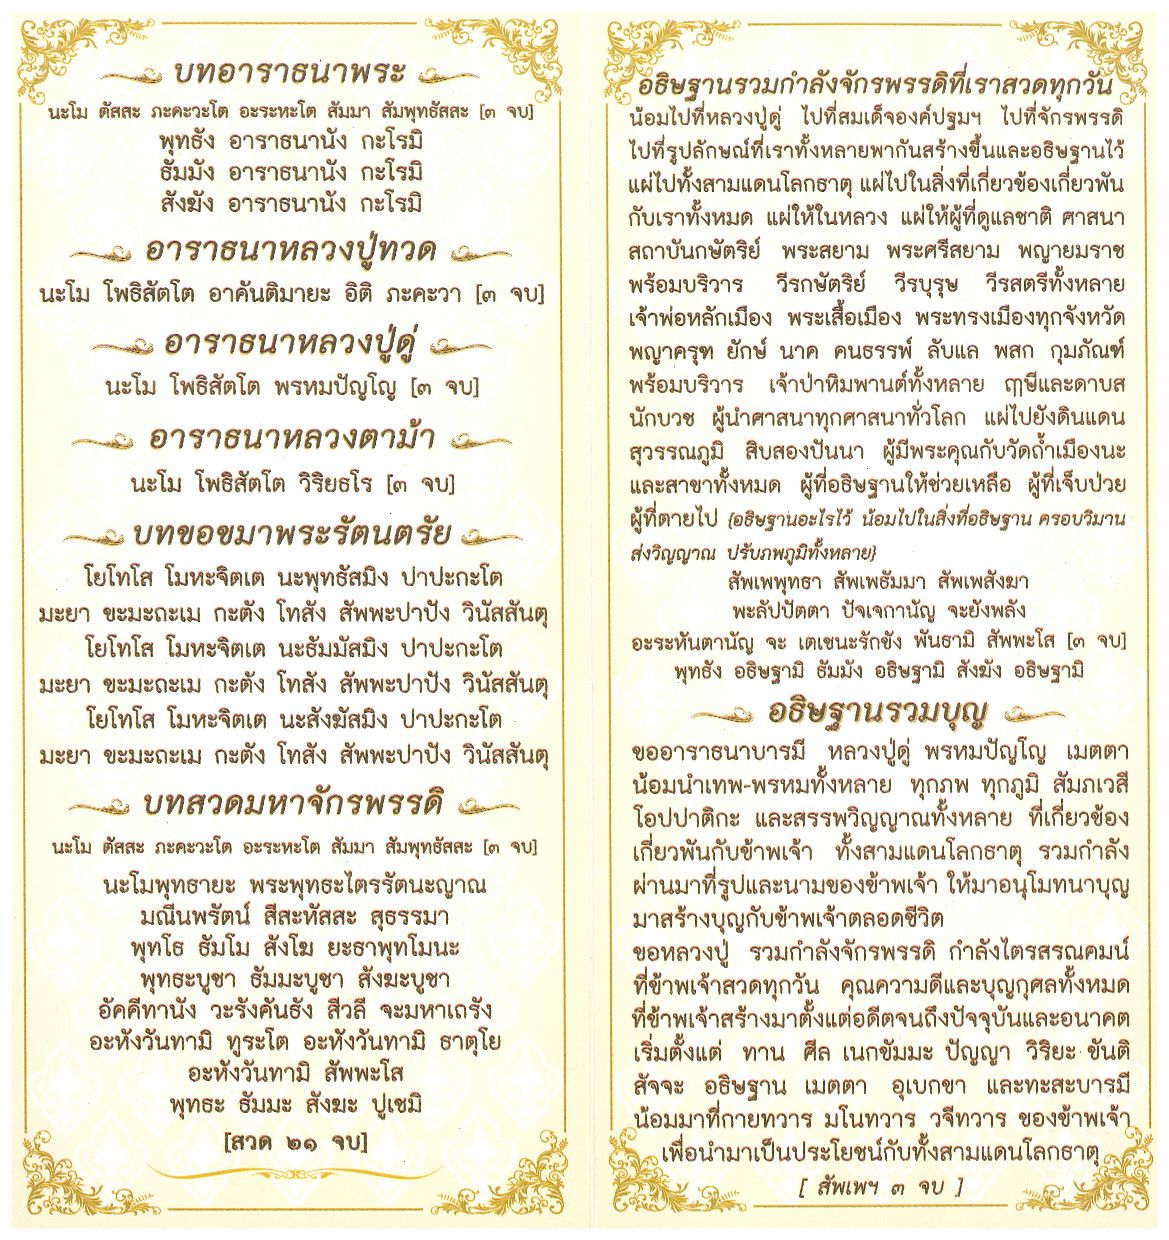 บทอาราธนาพระ
นะโม ตัสสะ ภะคะวะโต อะระหะโต สัมมา สัมพุทธัสสะ [๓ จบ]
พุทธัง อาราธนานัง กะโรมิ
ธัมมัง อาราธนานัง กะโรมิ
สังฆัง อาราธนานัง กะโรมิ
อาราธนาหลวงปู่ทวด
นะโม โพธิสัตโต อาคันติมายะ อิติ ภะคะวา [๓ จบ]
อาราธนาหลวงปู่ดู่
นะโม โพธิสัตโต พรหมปัญโญ [๓ จบ]
อาราธนาหลวงตาม้า
นะโม โพธิสัตโต วิริยธโร [๓ จบ]
บทขอขมาพระรัตนตรัย
โยโทโส โมหะจิตเต นะพุทธัสมิง ปาปะกะโต
มะยา ขะมะถะเม กะตัง โทสัง สัพพะปาปัง วินัสสันตุ
โยโทโส โมหะจิตเต นะธัมมัสมิง ปาปะกะโต
มะยา ขะมะถะเม กะตัง โทสัง สัพพะปาปัง วินัสสันตุ
โยโทโส โมหะจิตเต นะสังฆัสมิง ปาปะกะโต
มะยา ขะมะถะเม กะตัง โทสัง สัพพะปาปัง วินัสสันตุ
บทสวดมหาจักรพรรดิ
นะโม ตัสสะ ภะคะวะโต อะระหะโต สัมมา สัมพุทธัสสะ [๓ จบ]
นะโมพุทธายะ พระพุทธะไตรรัตนะญาณ
มณีนพรัตน์ สีสะหัสสะ สุธรรมา
พุทโธ ธัมโม สังโฆ ยะธาพุทโมนะ
พุทธะบูชา ธัมมะบูชา สังฆะบูชา
อัคคีทานัง วะรังคันธัง สีวลี จะมหาเถรัง
อะหังวันทามิ ทูระโต อะหังวันทามิ ธาตุโย
อะหังวันทามิ สัพพะโส
พุทธะ ธัมมะ สังฆะ ปูเชมิ
[สวด ๒๑ จบ]
อธิษฐานรวมกำลังจักรพรรดิที่เราสวดทุกวัน
น้อมไปที่หลวงปู่ดู่ ไปที่สมเด็จองค์ปฐมฯ ไปที่จักรพรรดิ
ไปที่รูปลักษณ์ที่เราทั้งหลายพากันสร้างขึ้นและอธิษฐานไว้
แผ่ไปทั้งสามแดนโลกธาตุ แผ่ไปในสิ่งที่เกี่ยวข้องเกี่ยวพัน
กับเราทั้งหมด แผ่ให้ในหลวง แผ่ให้ผู้ที่ดูแลชาติ ศาสนา
สถาบันกษัตริย์ พระสยาม พระศรีสยาม พญายมราช
พร้อมบริวาร วีรกษัตริย์ วีรบุรุษ วีรสตรีทั้งหลาย
เจ้าพ่อหลักเมือง พระเสื้อเมือง พระทรงเมืองทุกจังหวัด
พญาครุฑ ยักษ์ นาค คนธรรพ์ ลับแล พสก กุมภัณฑ์
พร้อมบริวาร เจ้าป่าหิมพานต์ทั้งหลาย ฤๅษีและดาบส
นักบวช ผู้นำศาสนาทุกศาสนาทั่วโลก แผ่ไปยังดินแดน
สุวรรณภูมิ สิบสองปันนา ผู้มีพระคุณกับวัดถ้ำเมืองนะ
และสาขาทั้งหมด ผู้ที่อธิษฐานให้ช่วยเหลือ ผู้ที่เจ็บป่วย
ผู้ที่ตายไป {อธิษฐานอะไรไว้ น้อมไปในสิ่งที่อธิษฐาน ครอบวิมาน
ส่งวิญญาณ ปรับภพภูมิทั้งหลาย}
สัพเพพุทธา สัพเพธัมมา สัพเพสังฆา
พะลัปปัตตา ปัจเจกานัญ จะยังพลัง
อะระหันตานัญ จะ เตเชนะรักขัง พันธามิ สัพพะโส [๓ จบ]
พุทธัง อธิษฐามิ ธัมมัง อธิษฐามิ สังฆัง อธิษฐามิ
อธิษฐานรวมบุญ
ขออาราธนาบารมี หลวงปู่ดู่ พรหมปัญโญ เมตตา
น้อมนำเทพ-พรหมทั้งหลาย ทุกภพ ทุกภูมิ สัมภเวสี
โอปปาติกะ และสรรพวิญญาณทั้งหลาย ที่เกี่ยวข้อง
เกี่ยวพันกับข้าพเจ้า ทั้งสามแดนโลกธาตุ รวมกำลัง
ผ่านมาที่รูปและนามของข้าพเจ้า ให้มาอนุโมทนาบุญ
มาสร้างบุญกับข้าพเจ้าตลอดชีวิต
ขอหลวงปู่ รวมกำลังจักรพรรดิ กำลังไตรสรณคมน์
ที่ข้าพเจ้าสวดทุกวัน คุณความดีและบุญกุศลทั้งหมด
ที่ข้าพเจ้าสร้างมาตั้งแต่อดีตจนถึงปัจจุบันและอนาคต
เริ่มตั้งแต่ ทาน ศีล เนกขัมมะ ปัญญา วิริยะ ขันติ
สัจจะ อธิษฐาน เมตตา อุเบกขา และทะสะบารมี
น้อมมาที่กายทวาร มโนทวาร วจีทวาร ของข้าพเจ้า
เพื่อนำมาเป็นประโยชน์กับทั้งสามแดนโลกธาตุ
[ สัพเพฯ ๓ จบ ]